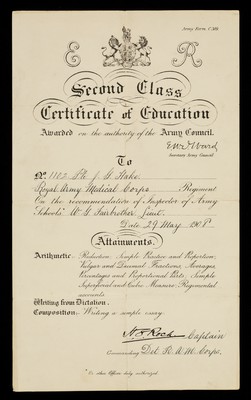 Army Form C.
E R
Second Class
Certificate of Education
Awarded on the authority of the Army Council.
E W D Ward
Secretary Army Council
To
No. 1102 Pte J. G. Hake
Royal Army Medical Corps Regiment
On the recommendation of Inspector of Army
Schools W G Fairbrother Lieut.
Date 29 May 1908
Attainments.
Arithmetic: Reduction, Simple Practice and Proportion,
Vulgar and Decimal Fractions, Averages,
Percentages and Proportional Parts, Simple
Superficial and Cubic Measure, Regimental
accounts.
Writing from Dictation.
Composition: Writing a simple essay.
Captain
Commanding Det. R. A. M. Corps.
Or other Officer duly authorized.